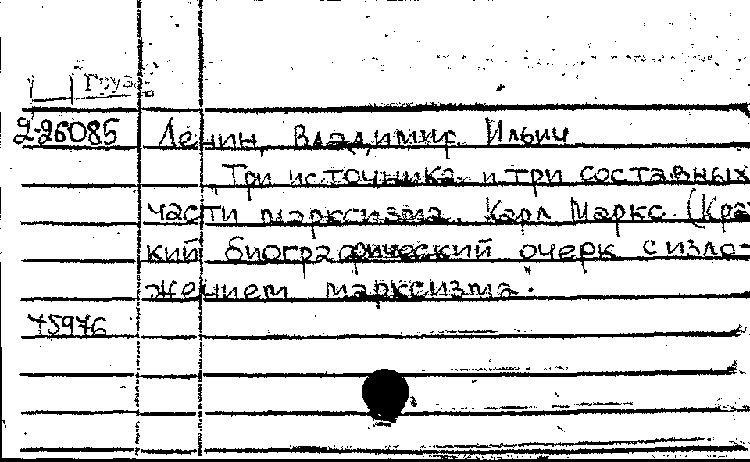 Груз
2-26085 Ленин, Владимир Ильич
Три источника и три составных
части марксизма. Карл Маркс. (Крат
кий биографический очерк с изло-
жением марксизма.
75976